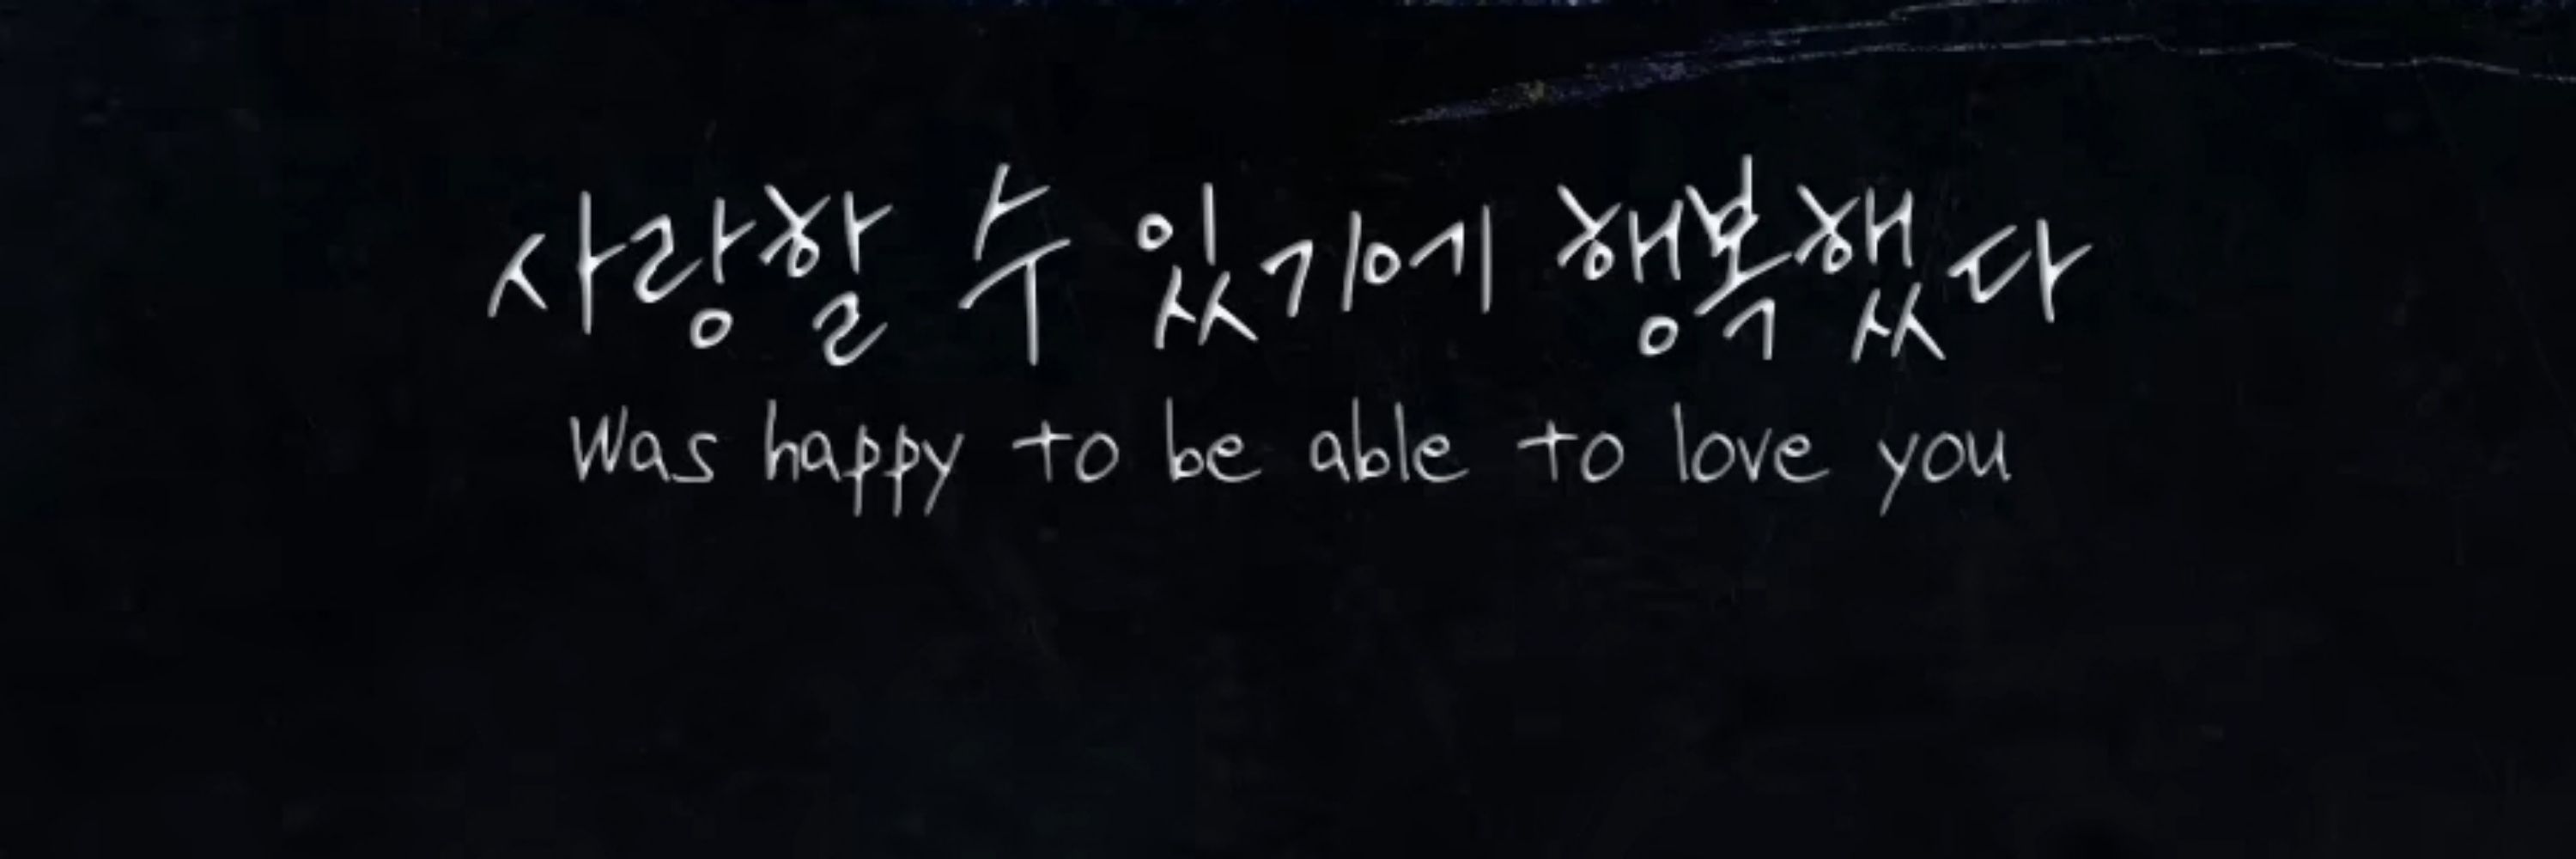 사랑할 수 있기에 행복했다
Was happy to be able to love you